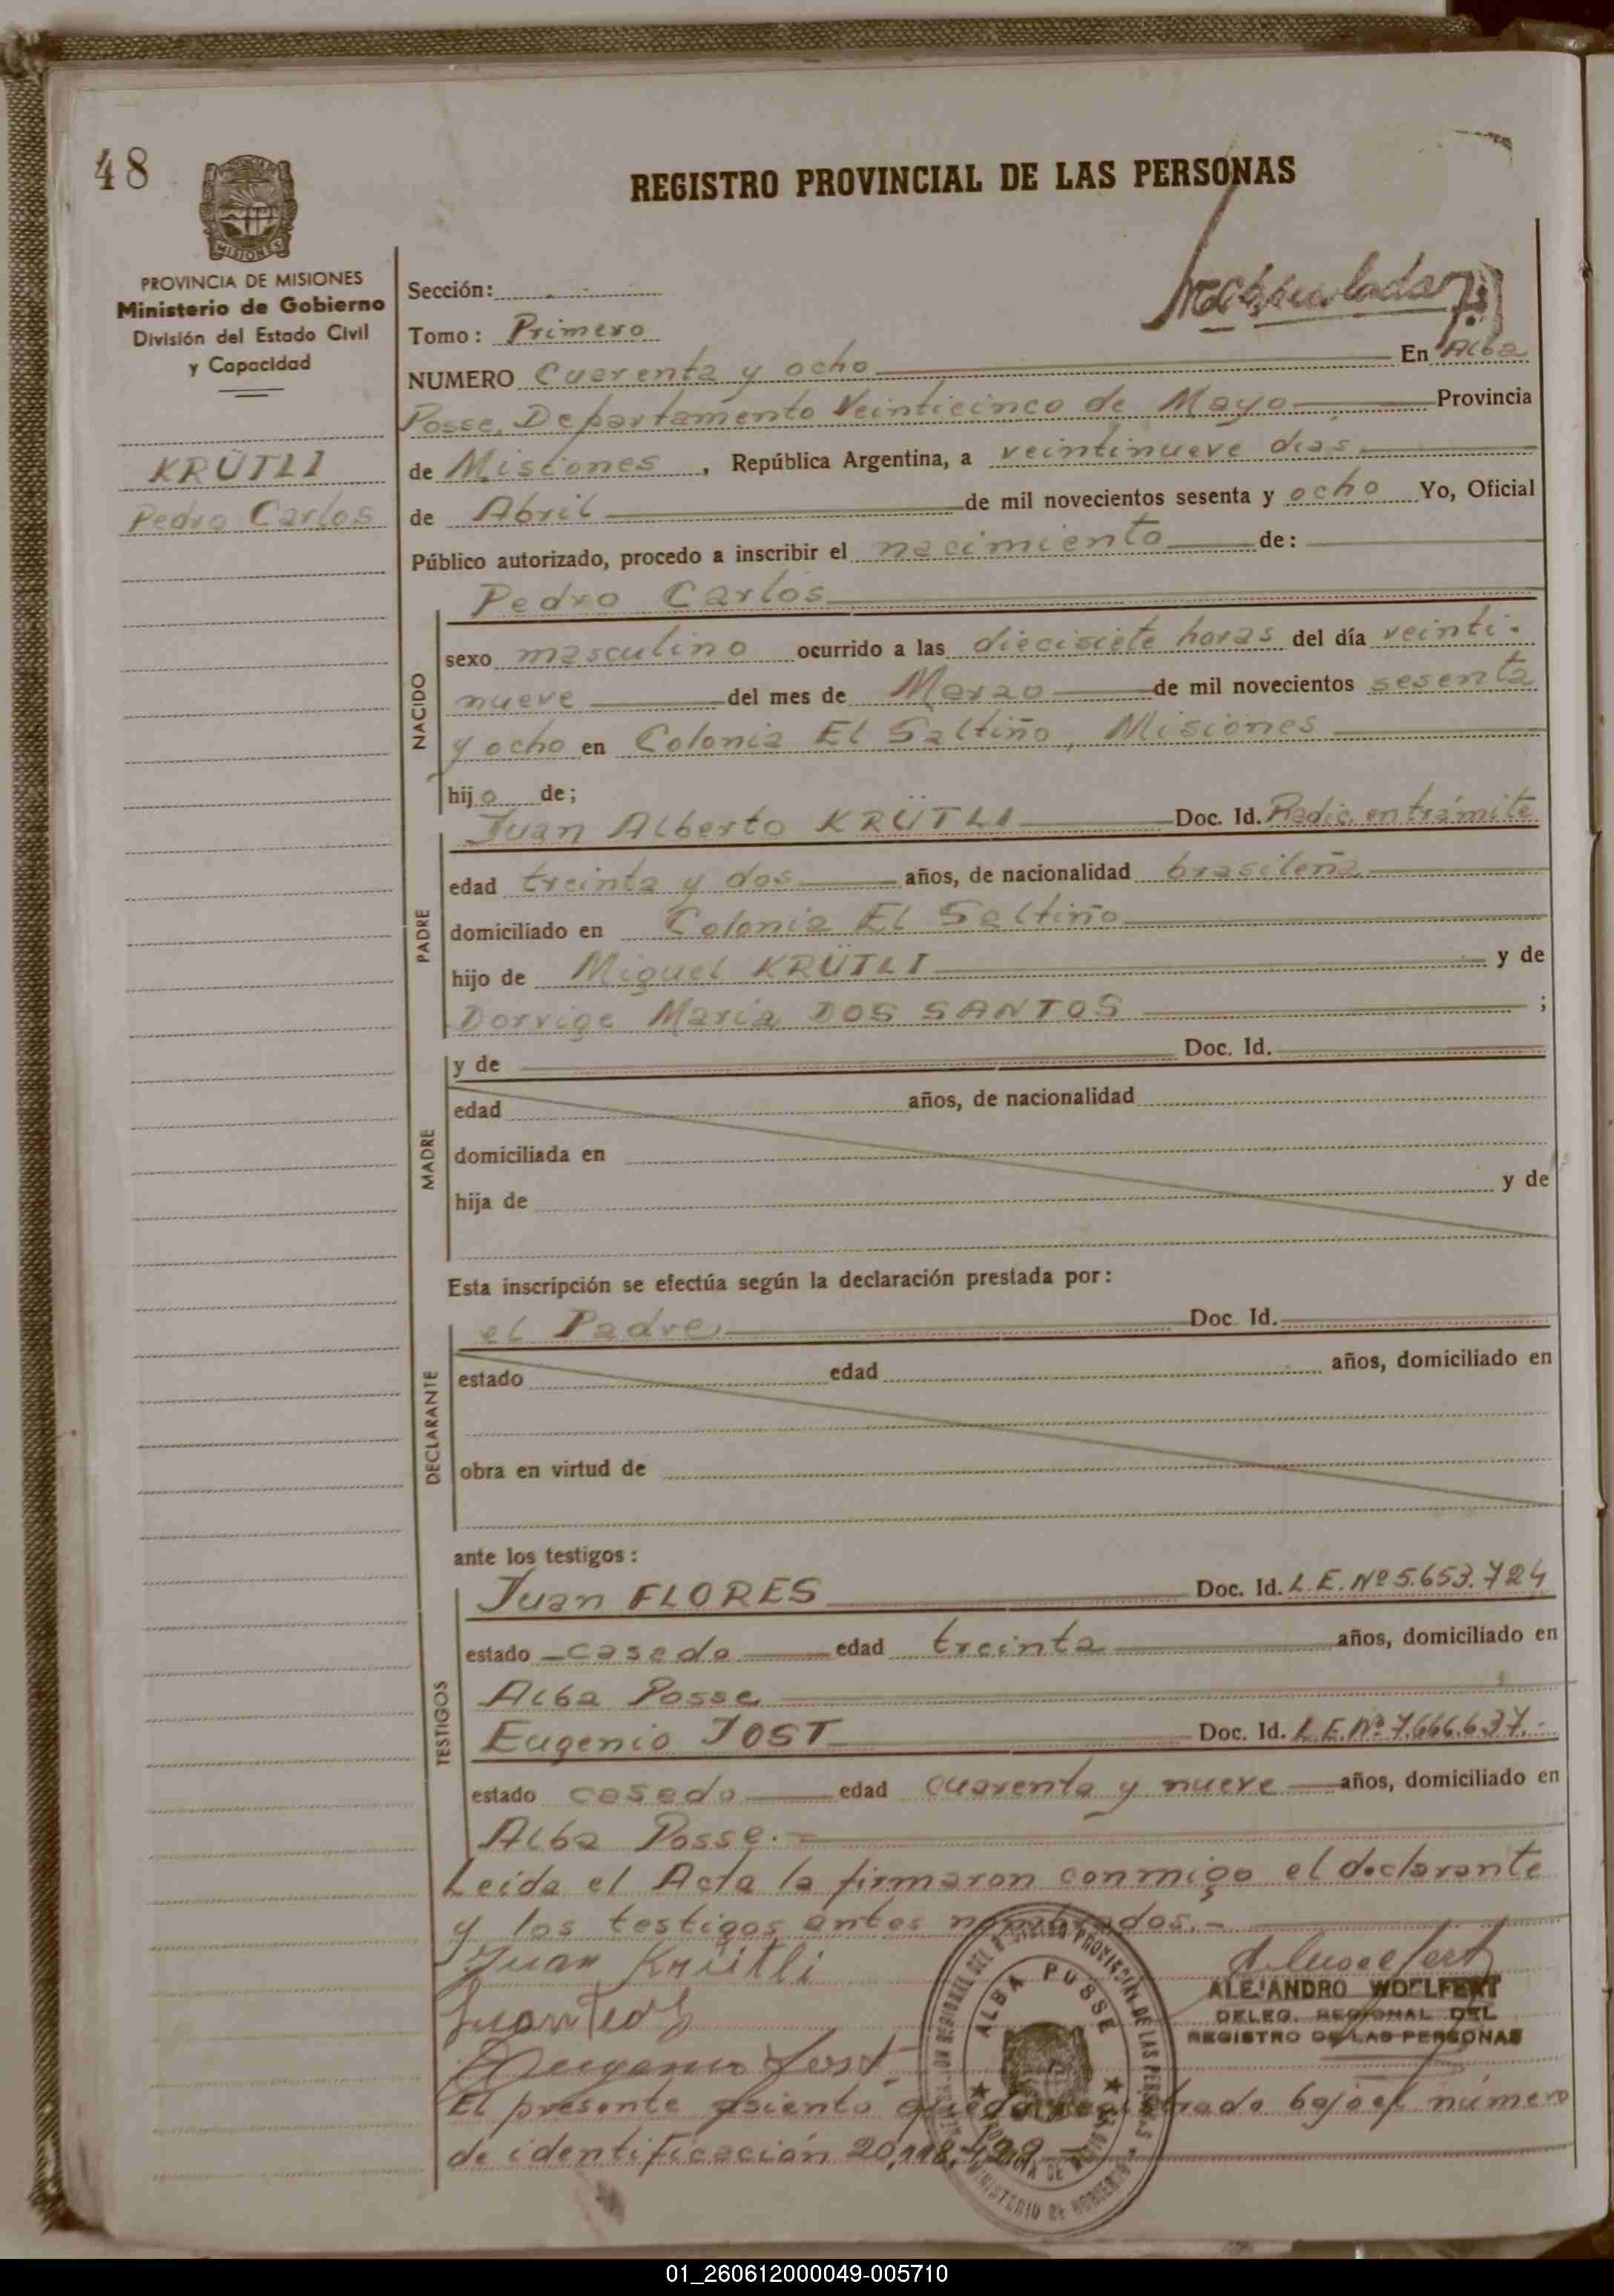 48
REGISTRO PROVINCIAL DE LAS PERSONAS
MISIONES
PROVINCIA DE MISIONES
Ministerio de Gobierno
División del Estado Civil
y Capacidad
KRÜTLI
Pedro Carlos
Sección:
Tomo: Primero
NUMERO Cuarenta y ocho En Alba
Posse, Departamento Veinticinco de Mayo Provincia
de Misiones, República Argentina, a veintinueve dias
de Abril de mil novecientos sesenta y ocho Yo, Oficial
Público autorizado, procedo a inscribir el nacimiento de:
NACIDO
Pedro Carlos
sexo masculino ocurrido a las diecisiete horas del día veinti-
nueve del mes de Marzo de mil novecientos sesenta
y ocho en Colonia El Saltiño, Misiones
hijo de;
PADRE
Juan Alberto KRÜTLI Doc. Id. Radic. en trámite
edad treinta y dos años, de nacionalidad brasileña
domiciliado en Colonia El Saltiño
hijo de Miguel KRÜTLI y de
Dorvige Maria DOS SANTOS ;
MADRE
y de Doc. Id.
edad años, de nacionalidad
domiciliada en
hija de y de
Esta inscripción se efectúa según la declaración prestada por:
DECLARANTE
el Padre Doc. Id.
estado edad años, domiciliado en
obra en virtud de
ante los testigos:
TESTIGOS
Juan FLORES Doc. Id. L.E. Nº 5.653.724
estado casado edad treinta años, domiciliado en
Alba Posse
Eugenio JOST Doc. Id. L.E. Nº 7.666.637.-
estado casado edad cuarenta y nueve años, domiciliado en
Alba Posse.-
Leida el Acta la firmaron conmigo el declarante
y los testigos antes nombrados.-
Juan Krütli
ALEJANDRO WOELFERT
DELEG. REGIONAL DEL
REGISTRO DE LAS PERSONAS
ALBA POSSE
El presente asiento queda registrado bajo el número
de identificación 20,118,
01_260612000049-005710